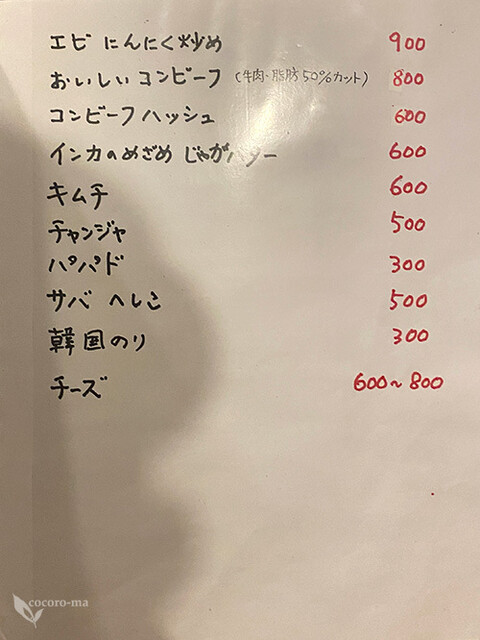 エビ にんにく炒め 900
おいしい コンビーフ (牛肉・脂肪50%カット) 800
コンビーフ ハッシュ 600
インカのめざめ じゃがバター 600
キムチ 600
チャンジャ 500
パパド 300
サバ へしこ 500
韓国のり 300
チーズ 600~800
cocoro-ma